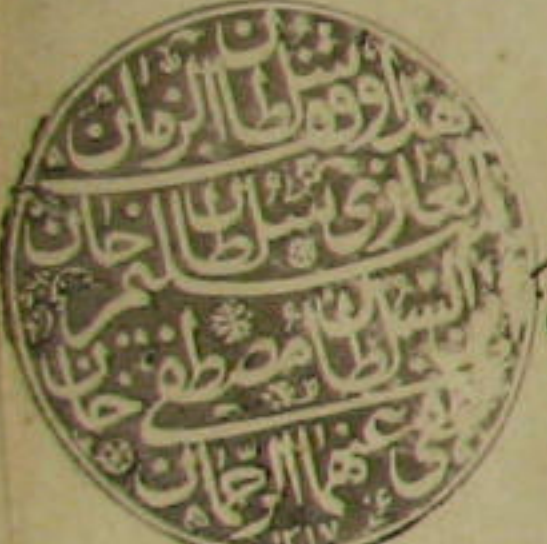 هذا وقف سلطان الزمان
الغازي سلطان سليم خان
بن السلطان مصطفى خان
عفى عنهما الرحمان
١٢١٧